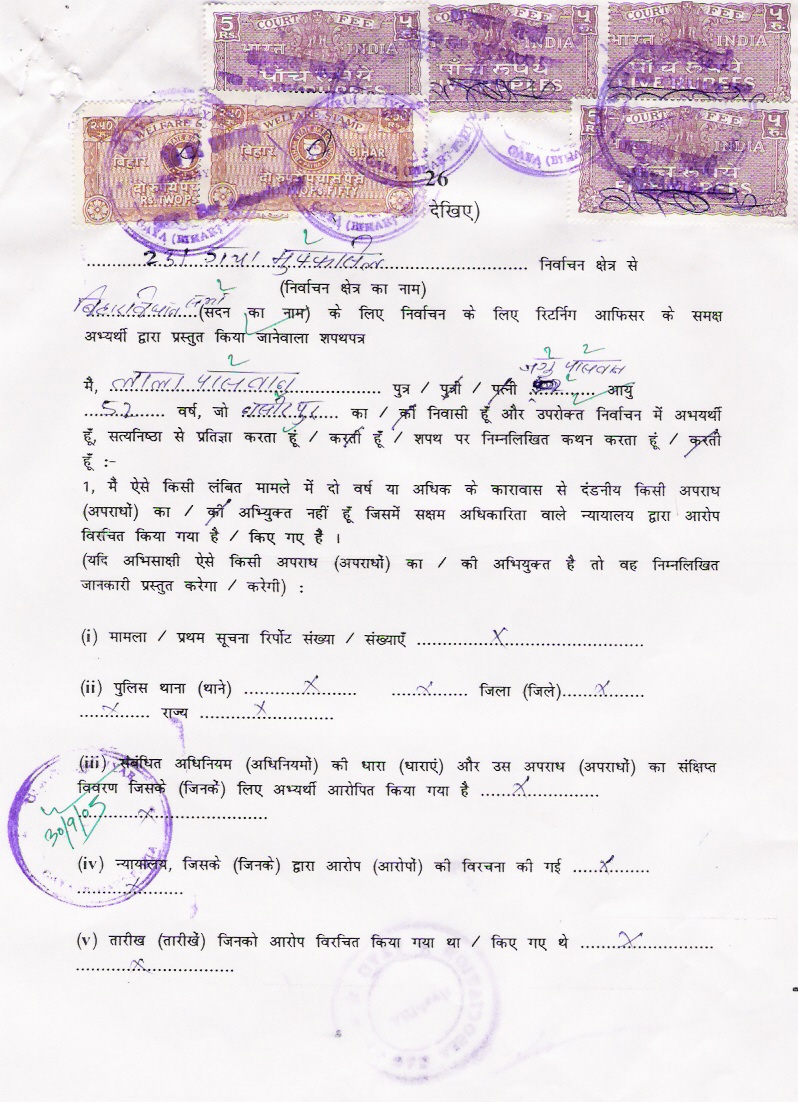 5 COURT FEE ५
RS. भारत INDIA रु.
पाँच रूपये
COURT FEE ५
INDIA रु.
पाँच रूपये
RUPEES
COURT FEE ५
भारत INDIA रु.
पाँच रूपये
FIVE RUPEES
5 COURT FEE ५
RS. भारत INDIA रु.
पाँच रूपये
२.५० WELFARE
बिहार
दो रुपये पचास
RS. TWOPS
WELFARE STAMP
बिहार BIHAR
दो रुपये पचास पैसे
RS. TWOPS. FIFTY
GAYA (BIHAR)
26
देखिए)
231 गया मुफस्सिल निर्वाचन क्षेत्र से
(निर्वाचन क्षेत्र का नाम)
बिहार विधान सभा (सदन का नाम) के लिए निर्वाचन के लिए रिटर्निग आफिसर के समक्ष
अभ्यर्थी द्वारा प्रस्तुत किया जानेवाला शपथपत्र
मैं, पुत्र / पुत्री / पत्नी आयु
52 वर्ष, जो का / की निवासी हूँ और उपरोक्त निर्वाचन में अभयर्थी
हूँ, सत्यनिष्ठा से प्रतिज्ञा करता हूं / करती हूँ / शपथ पर निम्नलिखित कथन करता हूं / करती
हूँ :-
1, मैं ऐसे किसी लंबित मामले में दो वर्ष या अधिक के कारावास से दंडनीय किसी अपराध
(अपराधों) का / की अभियुक्त नहीं हूँ जिसमें सक्षम अधिकारिता वाले न्यायालय द्वारा आरोप
विरचित किया गया है / किए गए है ।
(यदि अभिसाक्षी ऐसे किसी अपराध (अपराधों) का / की अभियुक्त है तो वह निम्नलिखित
जानकारी प्रस्तुत करेगा / करेगी) :
(i) मामला / प्रथम सूचना रिर्पोट संख्या / संख्याएँ ........ x ........
(ii) पुलिस थाना (थाने) ........ x ........ ........ x ........ जिला (जिले)........ x ........
........ x ........ राज्य ........ x ........
(iii) संबंधित अधिनियम (अधिनियमों) की धारा (धाराएं) और उस अपराध (अपराधों) का संक्षिप्त
विवरण जिसके (जिनके) लिए अभ्यर्थी आरोपित किया गया है ........ x ........
........ x ........
30/9/05
(iv) न्यायालय, जिसके (जिनके) द्वारा आरोप (आरोपों) की विरचना की गई ........ x ........
........ x ........
(v) तारीख (तारीखें) जिनको आरोप विरचित किया गया था / किए गए थे ........ x ........
........ x ........